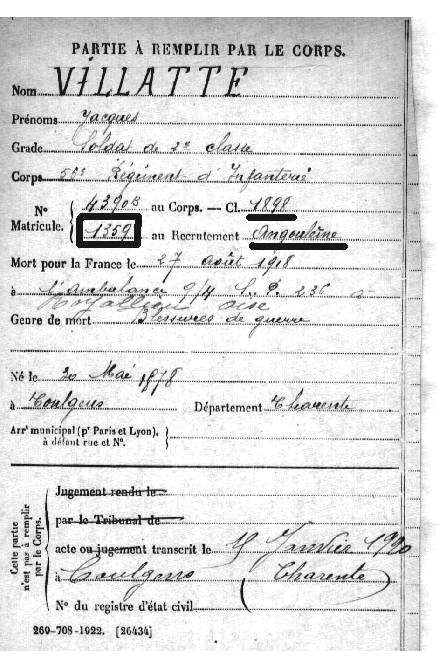 PARTIE À REMPLIR PAR LE CORPS.
Nom VILLATTE
Prénoms Jacques
Grade Soldat de 2e classe
Corps 50e Régiment d'Infanterie
N° Matricule. { 43908 au Corps. — Cl. 1898
1359 au Recrutement Angoulême
Mort pour la France le 27 août 1918
à l'Ambulance 9/4 S.P. 236 à
Royallieu Oise
Genre de mort Blessures de guerre
Né le 20 Mai 1878
à Coulgens Département Charente
Arrt municipal (pr Paris et Lyon), à défaut rue et N°.
Cette partie n'est pas à remplir par le Corps.
Jugement rendu le
par le Tribunal de
acte ou jugement transcrit le Janvier 1920
à Coulgens (Charente)
N° du registre d'état civil
269-708-1922. [26434]